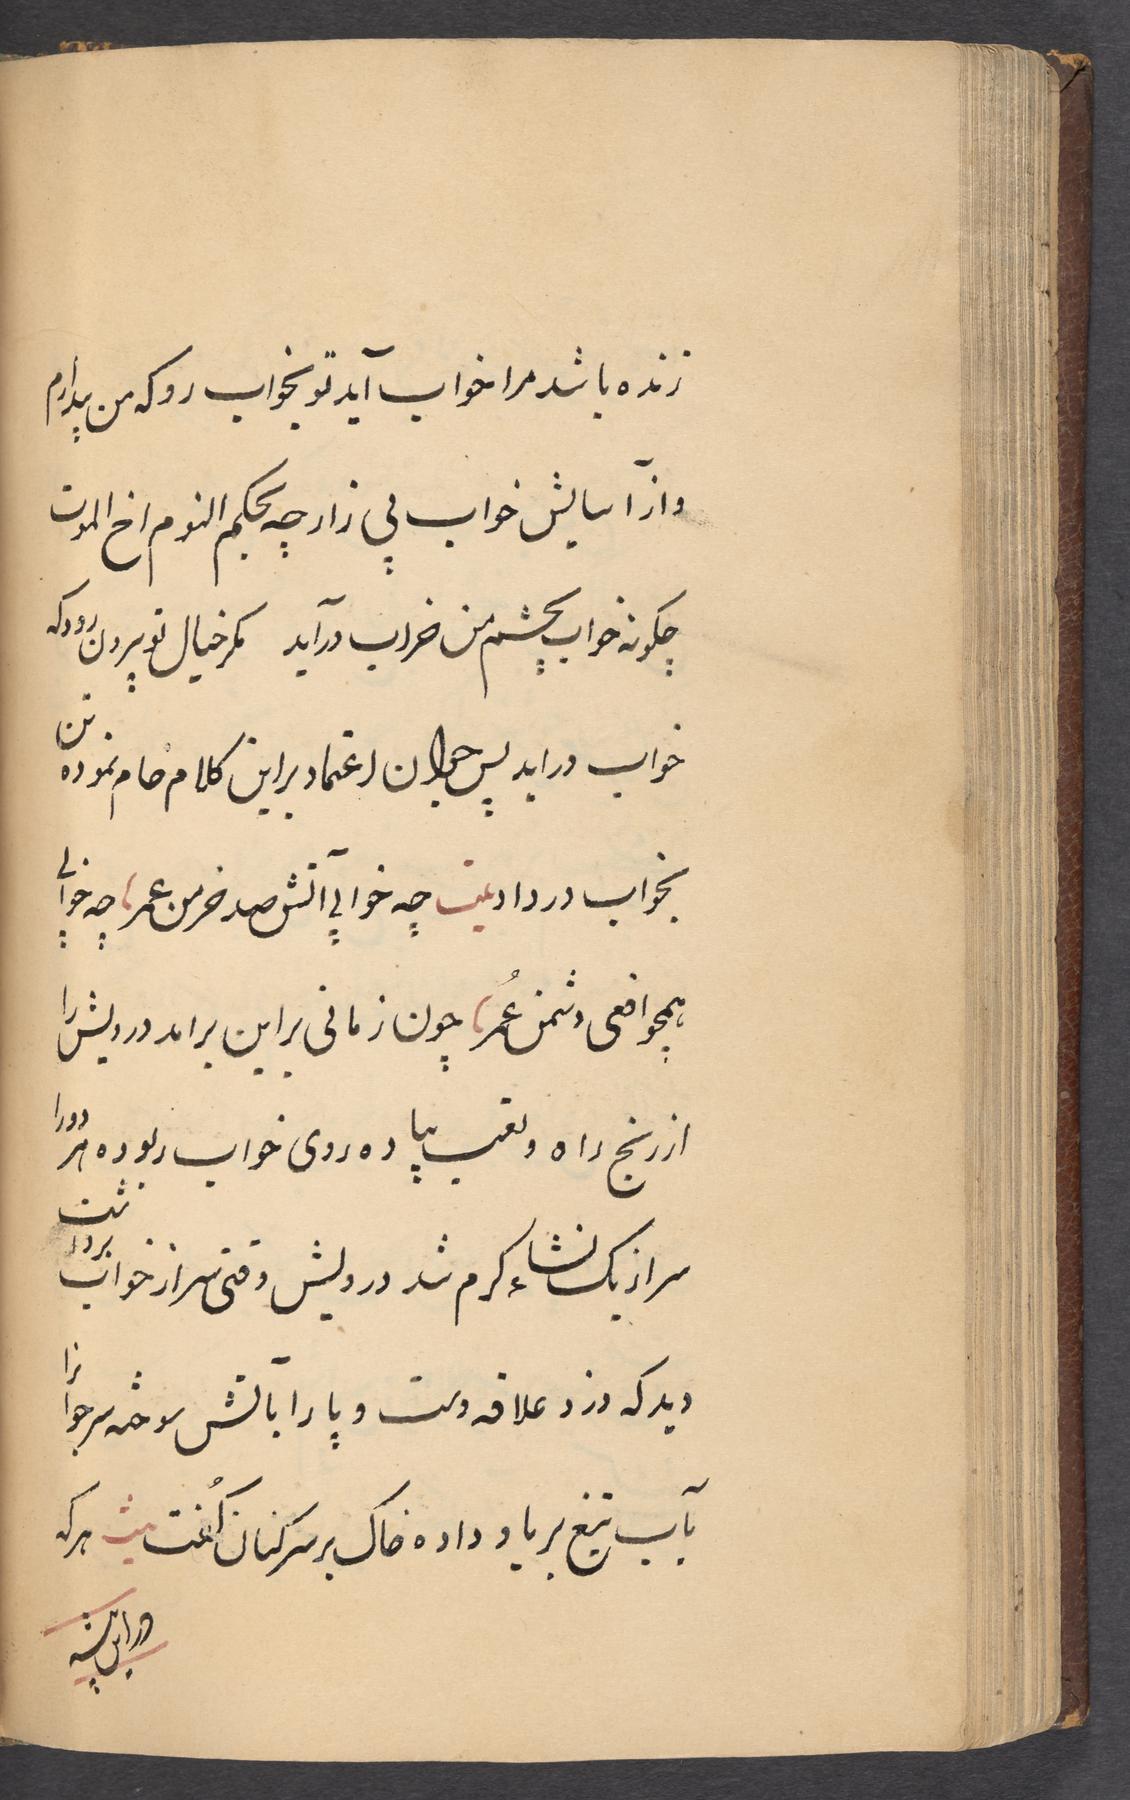 زنده باشد مرا خواب آید تو بخواب رو که من بیدارم
و از آسایش خواب بی زار چه بحکم النوم اخ الموت
چکونه خواب بچشم من خراب درآید مکر خیال تو بیرون رود که
خواب دراید پس جوان اعتماد براین کلام خام نموده تن
بخواب درداد بیت چه خوابی آتش صد خرمن عمر، چه خوابی
همچو افعی دشمن عُمر، چون زمانی براین برامد درویش را
از رنج راه و تعب پیاده روی خواب ربوده هر دو را
سر از یک نشاء کرم شد درویش وقتی سر از خواب برداشت
دید که دزد علاقه دست و پا را بآتش سوخته سر جوانرا
بآب تیغ بر باد داده خاک بر سر کنان کُفت بیت هرکه
دراین پیشه